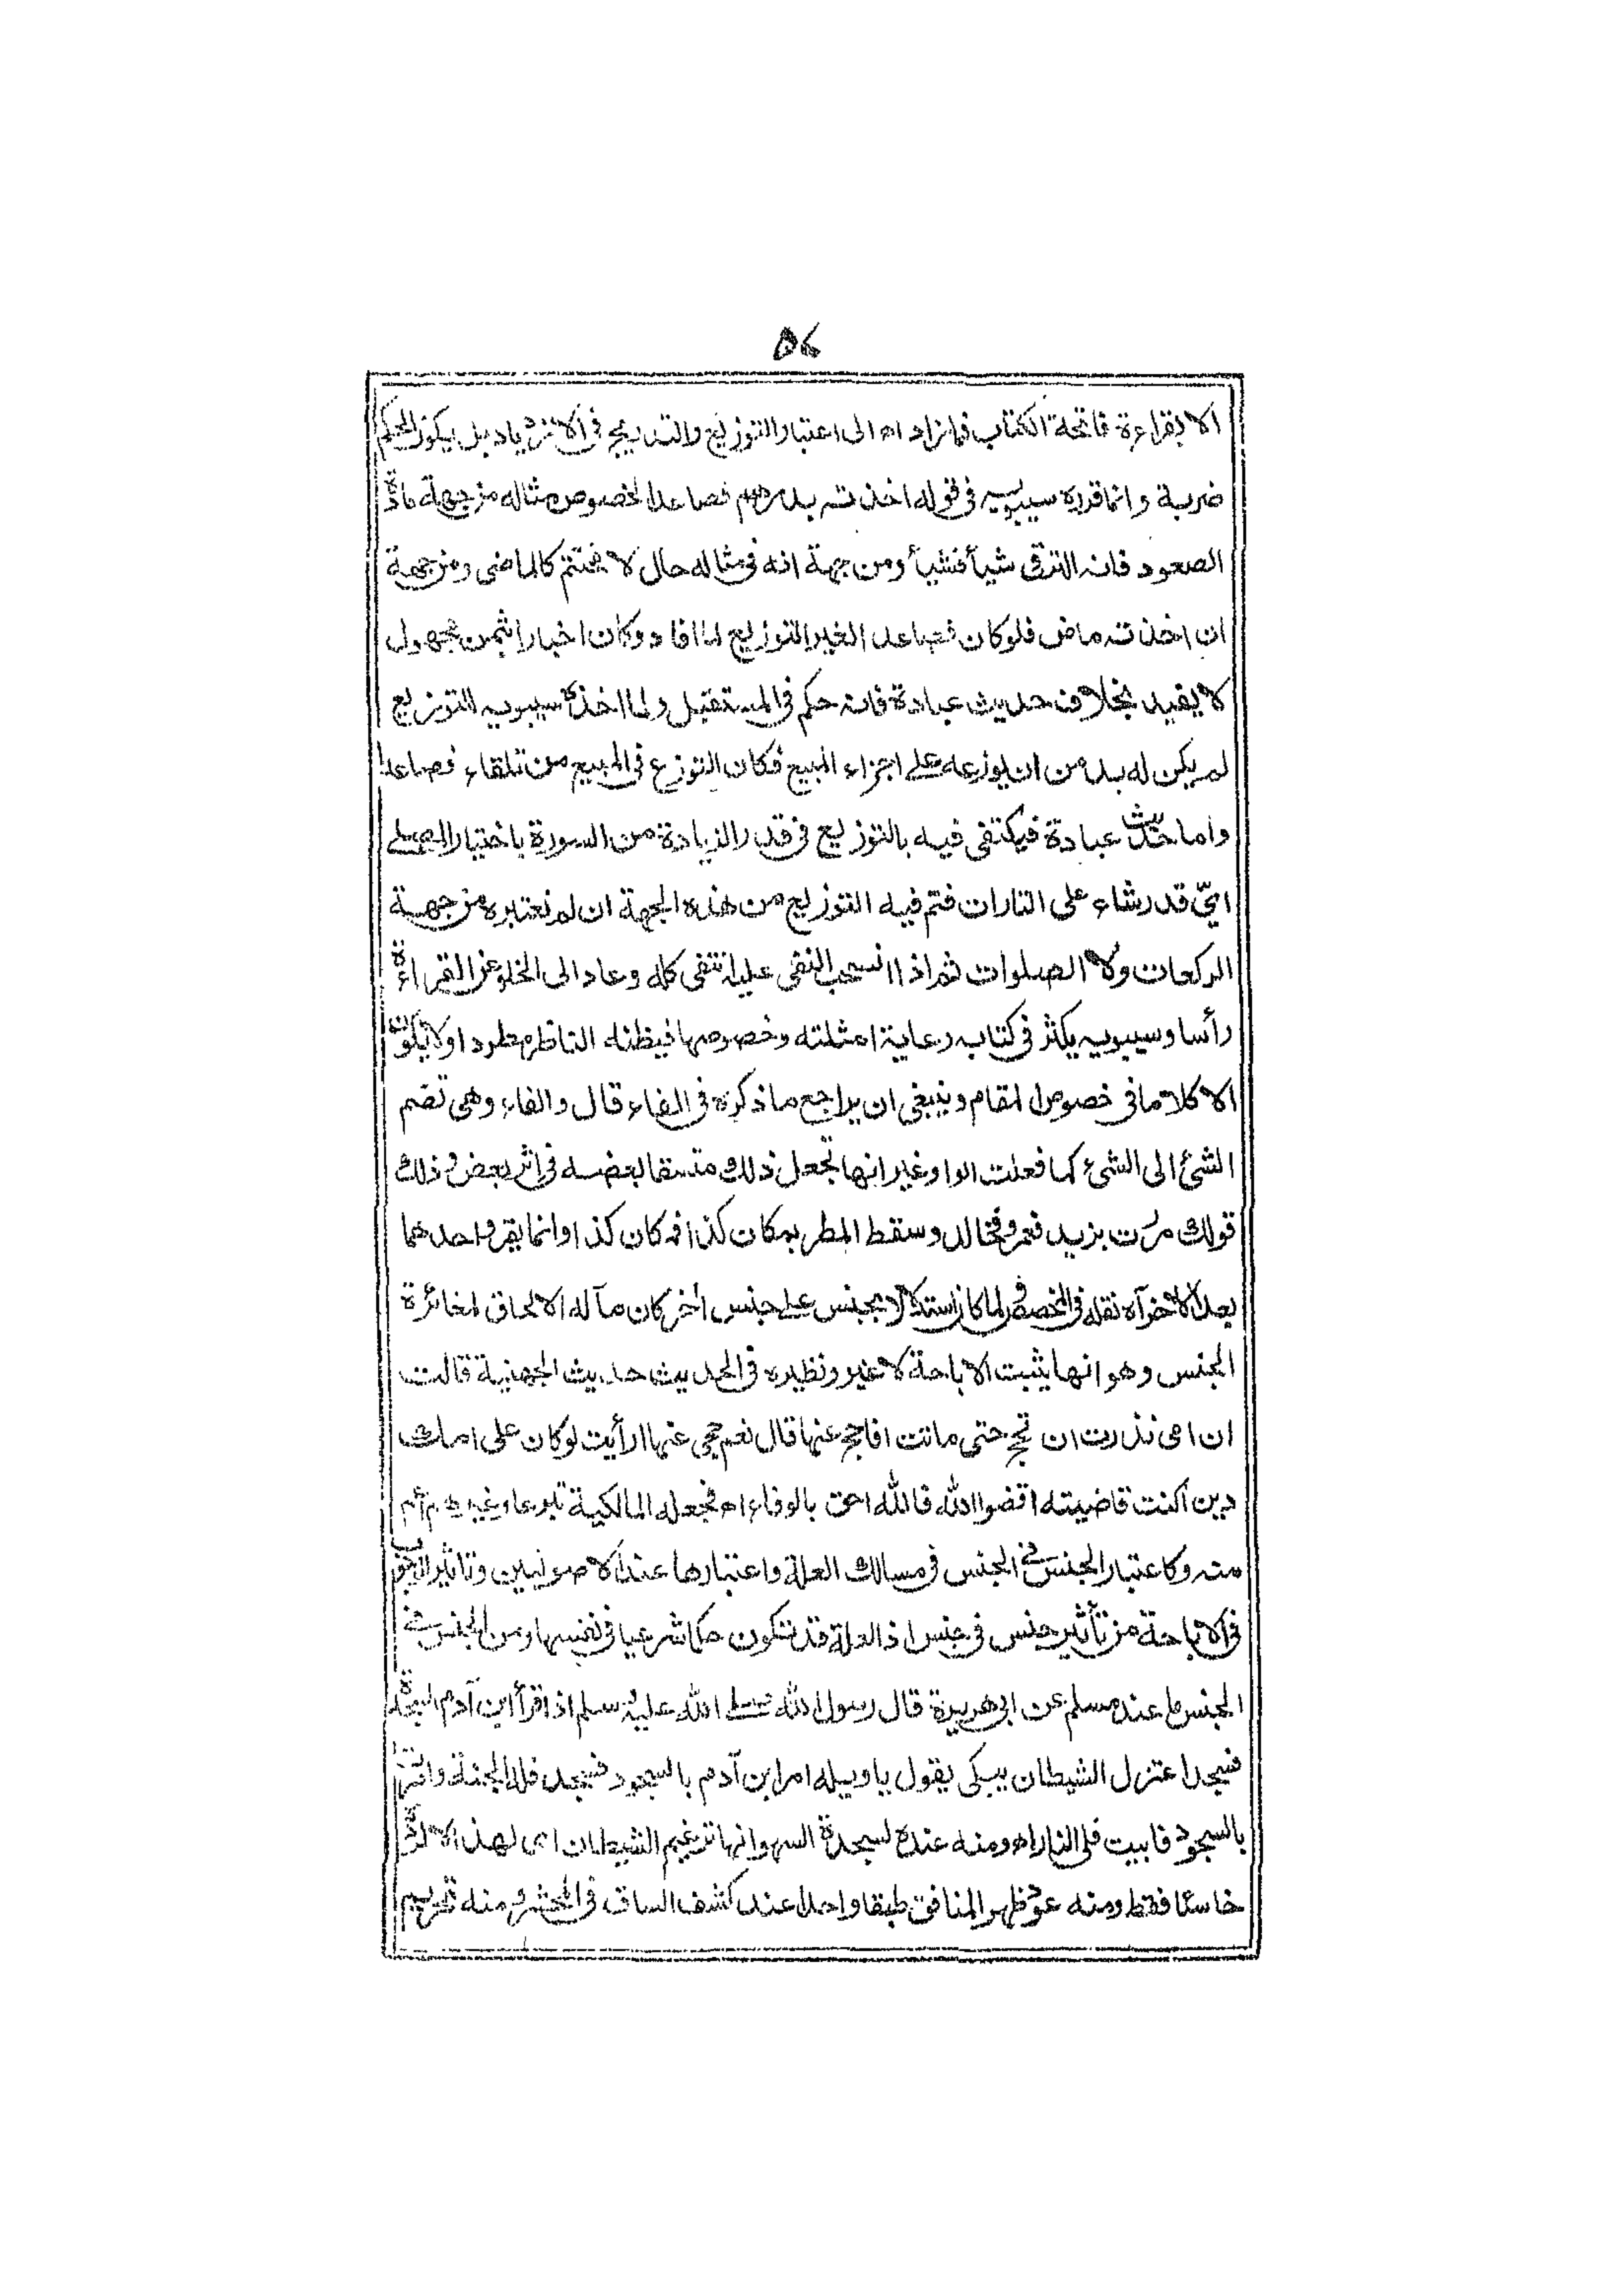 ۵۷
الا بقراءة فاتحة الكتاب فما زاد اه الى اعتبار التوزيع والتدريج فى الازدياد بل يكون الحكم
ضربة وانما قدره سيبويه فى قوله اخذته بدرهم فصاعدا لخصوص مثاله من جهة مادة
الصعود فانه الترقى شيأ فشيأ ومن جهة انه فى مثاله حال لا يختتم كالماضى ومن جهة
ان اخذته ماض فلو كان فصاعدا لغير التوزيع لما افاد وكان اخبارا بثمن مجهول
لا يفيد بخلاف حديث عبادة فانه حكم فى المستقبل ولما اخذه سيبويه للتوزيع
لم يكن له بد من ان يوزعه على اجزاء المبيع فكان التوزع فى المبيع من تلقاء فصاعدا
واما حديث عبادة فيكتفى فيه بالتوزيع فى قدر الزيادة من السورة باختيار المصلى
اىّ قدر شاء على التارات فتم فيه التوزيع من هذه الجهة ان لم نعتبره من جهة
الركعات ولا الصلوات ثم اذا انسحب النفى عليه انتفى كله وعاد الى الخلو عن القراءة
رأسا وسيبويه يكثر فى كتابه رعاية امثلته وخصوصها فيظنه الناظر مطردا ولا يكون
الا كلاما فى خصوص المقام وينبغى ان يراجع ما ذكره فى الفاء قال والفاء وهى تضم
الشئ الى الشئ كما فعلت الواو غير انها تجعل ذلك متسقا بعضه فى اثر بعض وذلك
قولك مررت بزيد فعمرو فخالد وسقط المطر بمكان كذا فمكان كذا وانما يقرو احدهما
بعد الاخر آه نقله فى المخصص ولما كان استدلالا بجنس على جنس اخر كان مآله الالحاق لمغائرة
الجنس وهو انها يثبت الاباحة لا غير ونظيره فى الحديث حديث الجهنية قالت
ان امى نذرت ان تحج حتى ماتت افاحج عنها قال نعم حجى عنها ارأيت لو كان على امك
دين اكنت قاضيته اقضوا الله فالله احق بالوفاء اه فجعله المالكية تبرعا وغيرهم اتم
منه وكاعتبار الجنس فى الجنس فى مسالك العلة واعتبارها عند الاصوليين وتاثير الوجوب
فى الاباحة من تأثير جنس فى جنس اذ العلة قد تكون حكما شرعيا فى نفسها ومن الجنس فى
الجنس ما عند مسلم عن ابى هريرة قال رسول الله صلى الله عليه وسلم اذا قرأ ابن آدم السجدة
فسجد اعتزل الشيطان يبكى يقول يا ويله امر ابن آدم بالسجود فسجد فله الجنة وامرت
بالسجود فابيت فلى النار اه ومنه عنده لسجدة السهو انها ترغيم الشيطان اى لهذا
خاسئا فقط ومنه عود ظهر المنافق طبقا واحدا عند كشف الساق فى المحشر ومنه تحريم